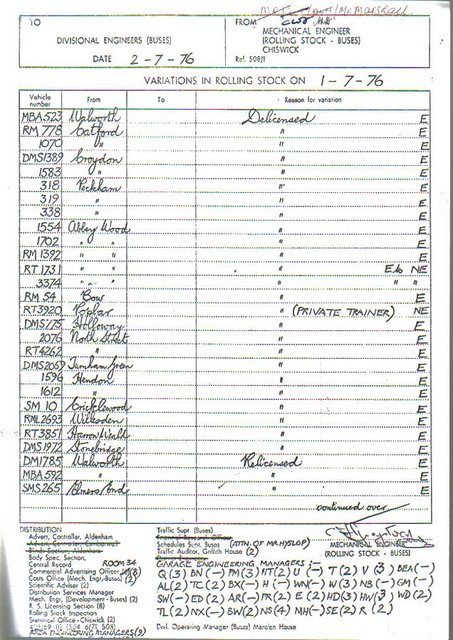 TO
DIVISIONAL ENGINEERS (BUSES)
DATE 2-7-76
FROM
MECHANICAL ENGINEER
(ROLLING STOCK - BUSES)
CHISWICK
Ref. 508/1
VARIATIONS IN ROLLING STOCK ON 1-7-76
Vehicle number From To Reason for variation
MBA523 Walworth Delicensed E
RM 778 Catford " E
1070 " " E
DMS1389 Croydon " E
1583 " " E
318 Peckham " E
319 " " E
338 " " E
1554 Abbey Wood " E
1702 " " " E
RM 1392 " " " E
RT 1731 " " " NE
3374 " " " " "
RM 54 Bow " E
RT3920 Poplar " (PRIVATE TRAINER) NE
DMS775 Holloway " E
2076 North Street " E
RT4262 " " E
DMS2059 Turnham Green " E
1596 Hendon " E
1612 " " E
SM 10 Cricklewood " E
RML2693 Willesden " E
RT3851 Harrow Weald " E
DMS1972 Stonebridge " E
DM1785 Walworth Relicensed E
MBA592 " " E
SMS265 Elmers End " E
continued over
MECHANICAL ENGINEER
(ROLLING STOCK - BUSES)
DISTRIBUTION
Advert. Controller, Aldenham
Body Spec. Section,
Central Record ROOM 34
Commercial Advertising Officer
Costs Office (Mech. Engr.-Buses) (2)
Scientific Adviser (2)
Distribution Services Manager
Mech. Engr. (Development - Buses) (2)
R. S. Licensing Section (8)
Rolling Stock Inspection
Statistical Office - Chiswick (2)
AREA ENGINEERING MANAGERS (9)
Traffic Supt (Buses)
Schedules Supt. Buses (ATTN. OF MR HYSLOP)
Traffic Auditor, Griffith House (2)
GARAGE ENGINEERING MANAGERS
Q (3) BN (-) PM (3) HT (2) U (-) T (2) V (3) BEA (-)
AL (2) TC (2) BX (-) H (-) WN (-) W (3) NB (-) GM (-)
SW (-) ED (2) AR (-) PR (2) E (2) HD (3) HW (3) WD (2)
TL (2) NX (-) BW (2) NS (4) MH (-) SE (2) R (2)
Divl. Operating Manager (Buses) Mansion House